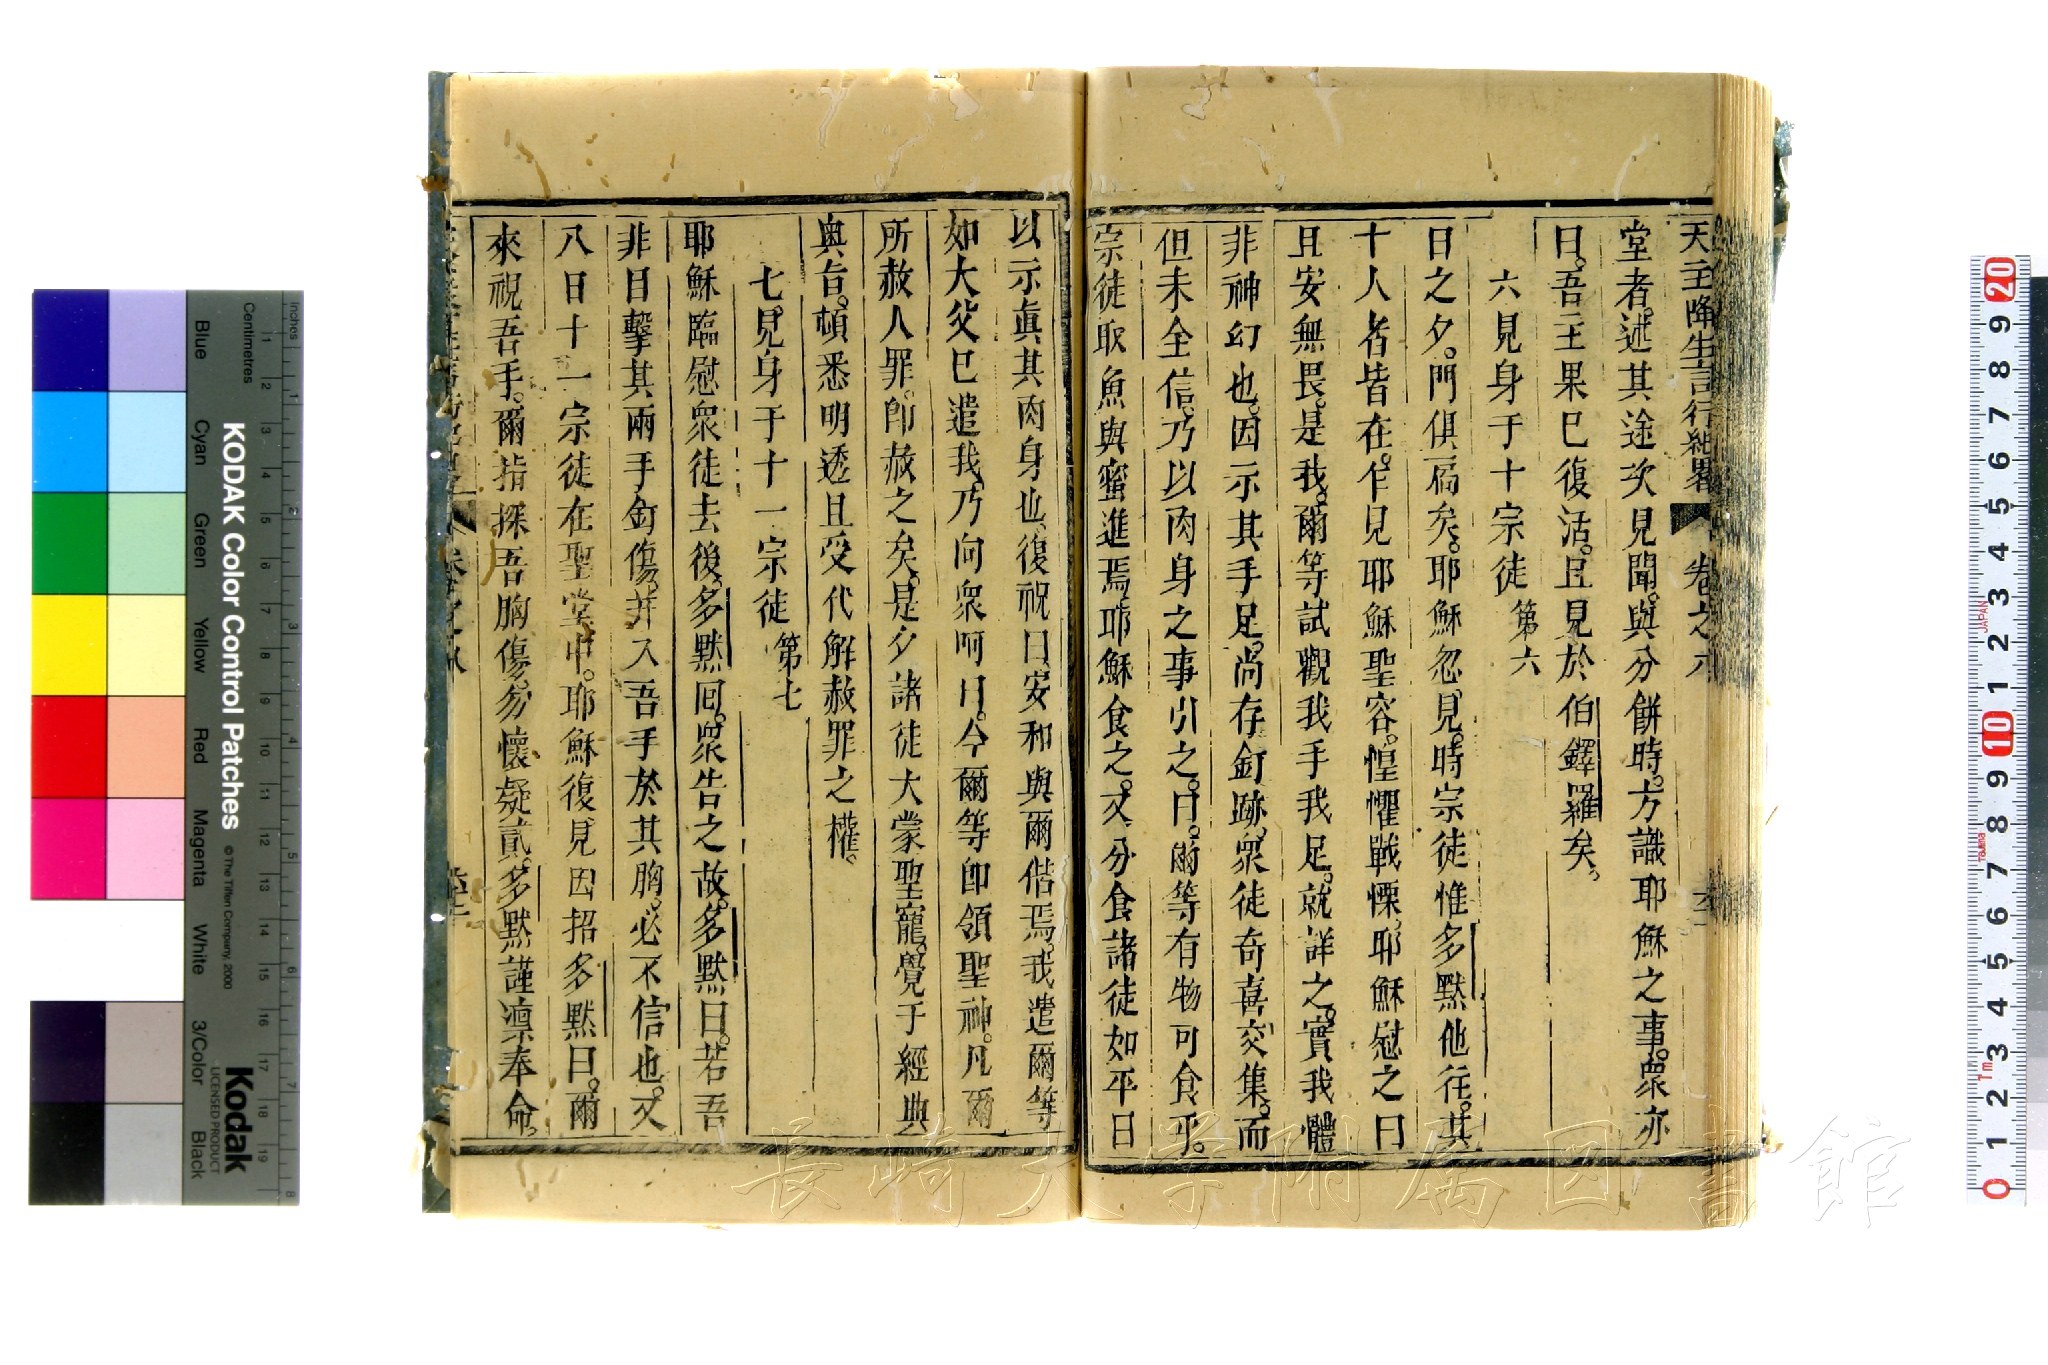 天主降生言行紀畧 卷之八
堂者。述其途次見聞。與分餅時。方識耶穌之事。衆亦
曰。吾主果已復活。且見於伯鐸羅矣。
六見身于十宗徒 第六
日之夕。門俱扃矣。耶穌忽見。時宗徒惟多默他往。其
十人者皆在。乍見耶穌聖容。惶懼戰慄。耶穌慰之曰
且安無畏。是我。爾等試觀我手我足。就詳之。實我體
非神幻也。因示其手足。尚存釘跡。衆徒奇喜交集。而
但未全信。乃以肉身之事引之。曰。爾等有物可食乎。
宗徒取魚與蜜進焉。耶穌食之。又分食諸徒如平日
以示眞其肉身也。復祝曰。安和與爾偕焉。我遣爾等
如大父已遣我。乃向衆呵曰。今爾等即領聖神。凡爾
所赦人罪。卽赦之矣。是夕諸徒大蒙聖寵。覺于經典
奥旨。頓悉明透且受代解赦罪之權。
七見身于十一宗徒 第七
耶穌臨慰衆徒去後。多黙囘。衆告之故。多黙曰。若吾
非目擊其兩手釘傷。并入吾手於其胸。必不信也。又
八日十一宗徒在聖堂中。耶穌復見因招多黙曰。爾
來視吾手。爾指探吾胸傷。勿懷疑貳。多黙謹凛奉命。
長崎大学附属図書館
KODAK Color Control Patches
© The Tiffen Company, 2000
Kodak
LICENSED PRODUCT
Inches
Centimetres
Blue
Cyan
Green
Yellow
Red
Magenta
White
3/Color
Black
JAPAN